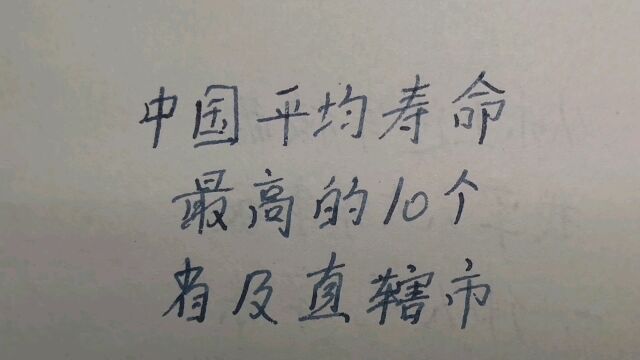 中国平均寿命
最高的10个
省及直辖市